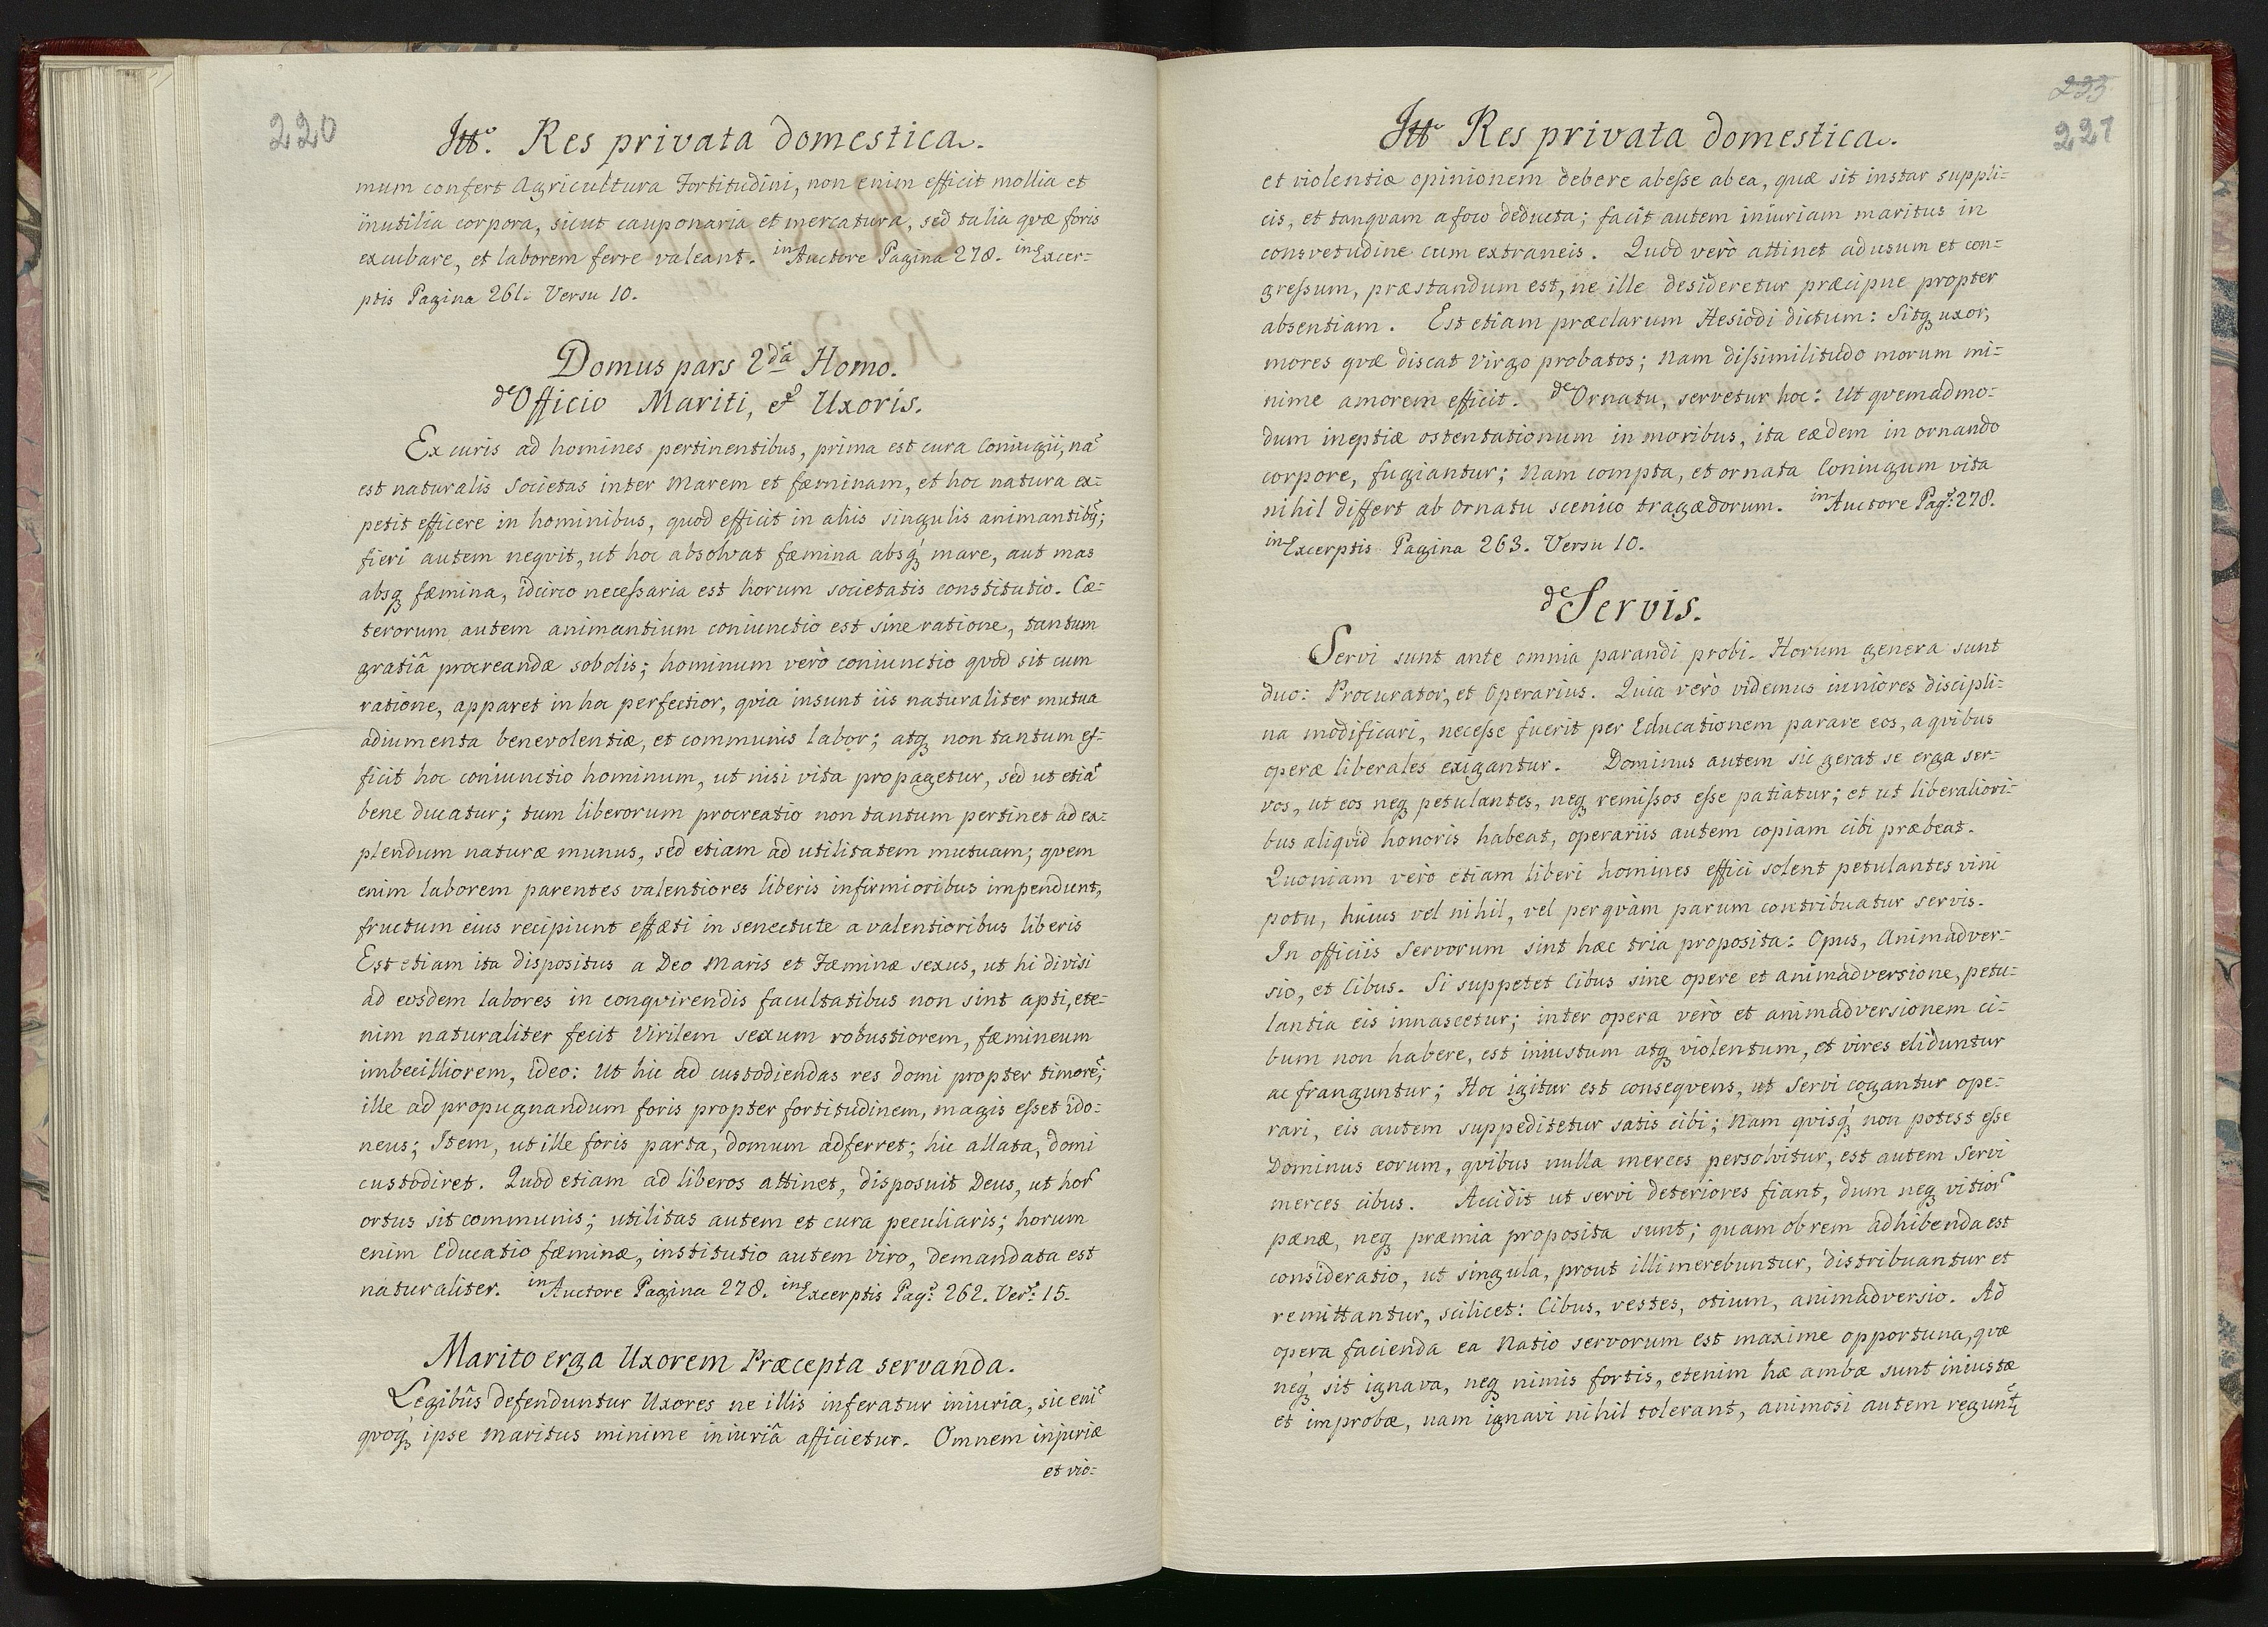 220
Itt.º Res privata domestica.
mum confert Agricultura Fortitudini, non enim efficit mollia et
inutilia corpora, sicut cauponaria et mercatura, sed talia qvæ foris
excubare, et laborem ferre valeant. in Auctore Pagina 278. in Excer-
ptis Pagina 261. Versu 10.
Domus pars 2da Homo.
de Officio Mariti, et Uxoris.
Ex curis ad homines pertinentibus, prima est cura Coniugii, nã
est naturalis Societas inter Marem et fæminam, et hoc natura ex-
petit efficere in hominibus, quod efficit in aliis singulis animantibq;
fieri autem neqvit, ut hoc absolvat fæmina absq; mare, aut mas
absq; fæmina, idcirco necessaria est horum societatis constitutio. Cæ-
terorum autem animantium coniunctio est sine ratione, tantum
gratiâ procreandæ sobolis; hominum verò coniunctio qvod sit cum
ratione, apparet in hoc perfectior, qvia insunt iis naturaliter mutua
adiumenta benevolentiæ, et communis labor; atq; non tantum ef-
ficit hoc coniunctio hominum, ut nisi vita propagetur, sed ut etiã
bene ducatur; tum liberorum procreatio non tantum pertinet ad ex-
plendum naturæ munus, sed etiam ad utilitatem mutuam; qvem
enim laborem parentes valentiores liberis infirmioribus impendunt,
fructum eius recipiunt effæti in senectute a valentioribus liberis
Est etiam ita dispositus a Deo Maris et Fæminæ sexus, ut hi divisi
ad eosdem labores in conqvirendis facultatibus non sint apti, ete-
nim naturaliter fecit Virilem sexum robustiorem, fæmineum
imbecilliorem, ideo: Ut hic ad custodiendas res domi propter timorẽ;
ille ad propugnandum foris propter fortitudinem, magis esset ido-
neus; Item, ut ille foris parta, domum adferret; hic allata, domi
custodiret. Quod etiam ad liberos attinet, disposuit Deus, ut hor
ortus sit communis; utilitas autem et cura peculiaris; horum
enim Educatio fæminæ, institutio autem viro, demandata est
naturaliter. in Auctore Pagina 278. in Excerptis Pag: 262. Ver: 15.
Marito erga Uxorem Præcepta servanda.
Legibûs defenduntur Uxores ne illis inferatur iniuria, sic enĩ
qvoq; ipse maritus minime iniuriâ afficietur. Omnem injuriæ
et vio-
233
221
Itt.º Res privata domestica.
et violentiæ opinionem debere abesse ab ea, quæ sit instar suppli-
cis, et tanqvam a foco deducta; facit autem iniuriam maritus in
consvetudine cum extraneis. Quod verò attinet ad usum et con-
gressum, præstandum est, ne ille desideretur præcipue propter
absentiam. Est etiam præclarum Hesiodi dictum: Sitq; uxor,
mores qvæ discat Virgo probatos; Nam dissimilitudo morum mi-
nime amorem efficit. de Ornatu, servetur hoc: Ut qvemadmo-
dum ineptiæ ostentationum in moribus, ita eædem in ornando
corpore, fugiantur; Nam compta, et ornata Coniugum vita
nihil differt ab ornatu scenico tragædorum. in Auctore Pag: 278.
in Excerptis Pagina 263. Versu 10.
de Servis.
Servi sunt ante omnia parandi probi. Horum genera sunt
duo: Procurator, et Operarius. Quia verò videmus iuniores discipli-
na modificari, necesse fuerit per Educationem parare eos, a qvibus
operæ liberales exigantur. Dominus autem sic gerat se erga ser-
vos, ut eos neq; petulantes, neq; remissos esse patiatur; et ut liberaliori-
bus aliqvid honoris habeat, operariis autem copiam cibi præbeat.
Quoniam verò etiam liberi homines effici solent petulantes vini
potu, huius vel nihil, vel perqvàm parum contribuatur servis.
In officiis Servorum sint hæc tria proposita: Opus, Animadver-
sio, et Cibus. Si suppetet Cibus sine opere et animadversione, petu-
lantia eis innascetur; inter opera verò et animadversionem ci-
bum non habere, est iniustum atq; violentum, et vires eliduntur
ac franguntur; Hoc igitur est conseqvens, ut Servi cogantur ope-
rari, eis autem suppeditetur satis cibi; Nam qvisq; non potest esse
Dominus eorum, qvibus nulla merces persolvitur, est autem Servi
merces cibus. Accidit ut servi deteriores fiant, dum neq; vitior
pænæ, neq; præmia proposita sunt; quam ob rem adhibenda est
consideratio, ut singula, prout illi merebuntur, distribuantur et
remittantur, scilicet: Cibus, vestes, otium, animadversio. Ad
opera facienda ea Natio servorum est maxime opportuna, qvæ
neq; sit ignava, neq; nimis fortis, etenim hæ ambæ sunt iniustæ
et improbæ, nam ignavi nihil tolerant, animosi autem regunt;